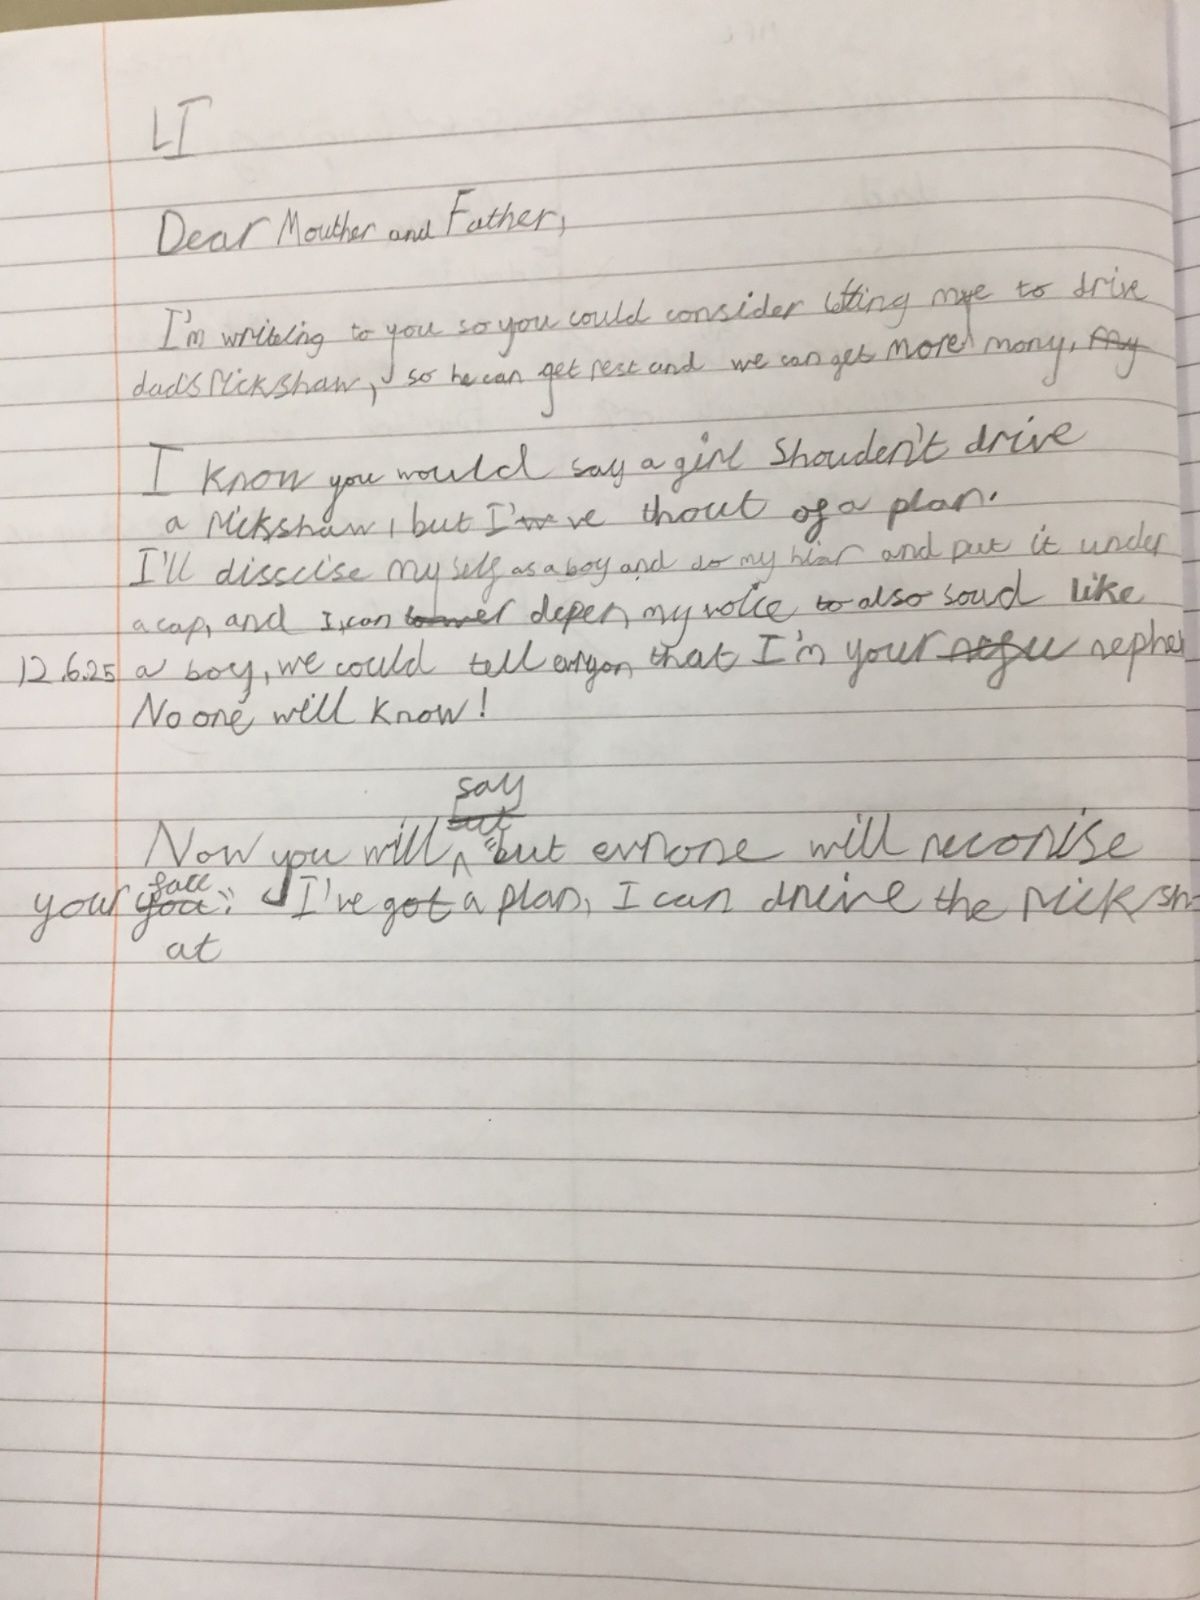 LI
Dear Mouther and Father,
I'm writeing to you so you could consider letting me to drive
dad's Rickshaw, so he can get rest and we can get more mony. my
I know you would say a girl shouden't drive
a Rickshaw, but I've thout of a plan.
I'll disscise my self as a boy and do my hiar and put it under
a cap, and I, can lower depen my voice to also soud like
12.6.25 a boy, we could tell that I'm your nephe
No one will know!
say
but
Now you will "but evrione will reconise
face
your you". I've got a plan, I can drive the Rick sh
at